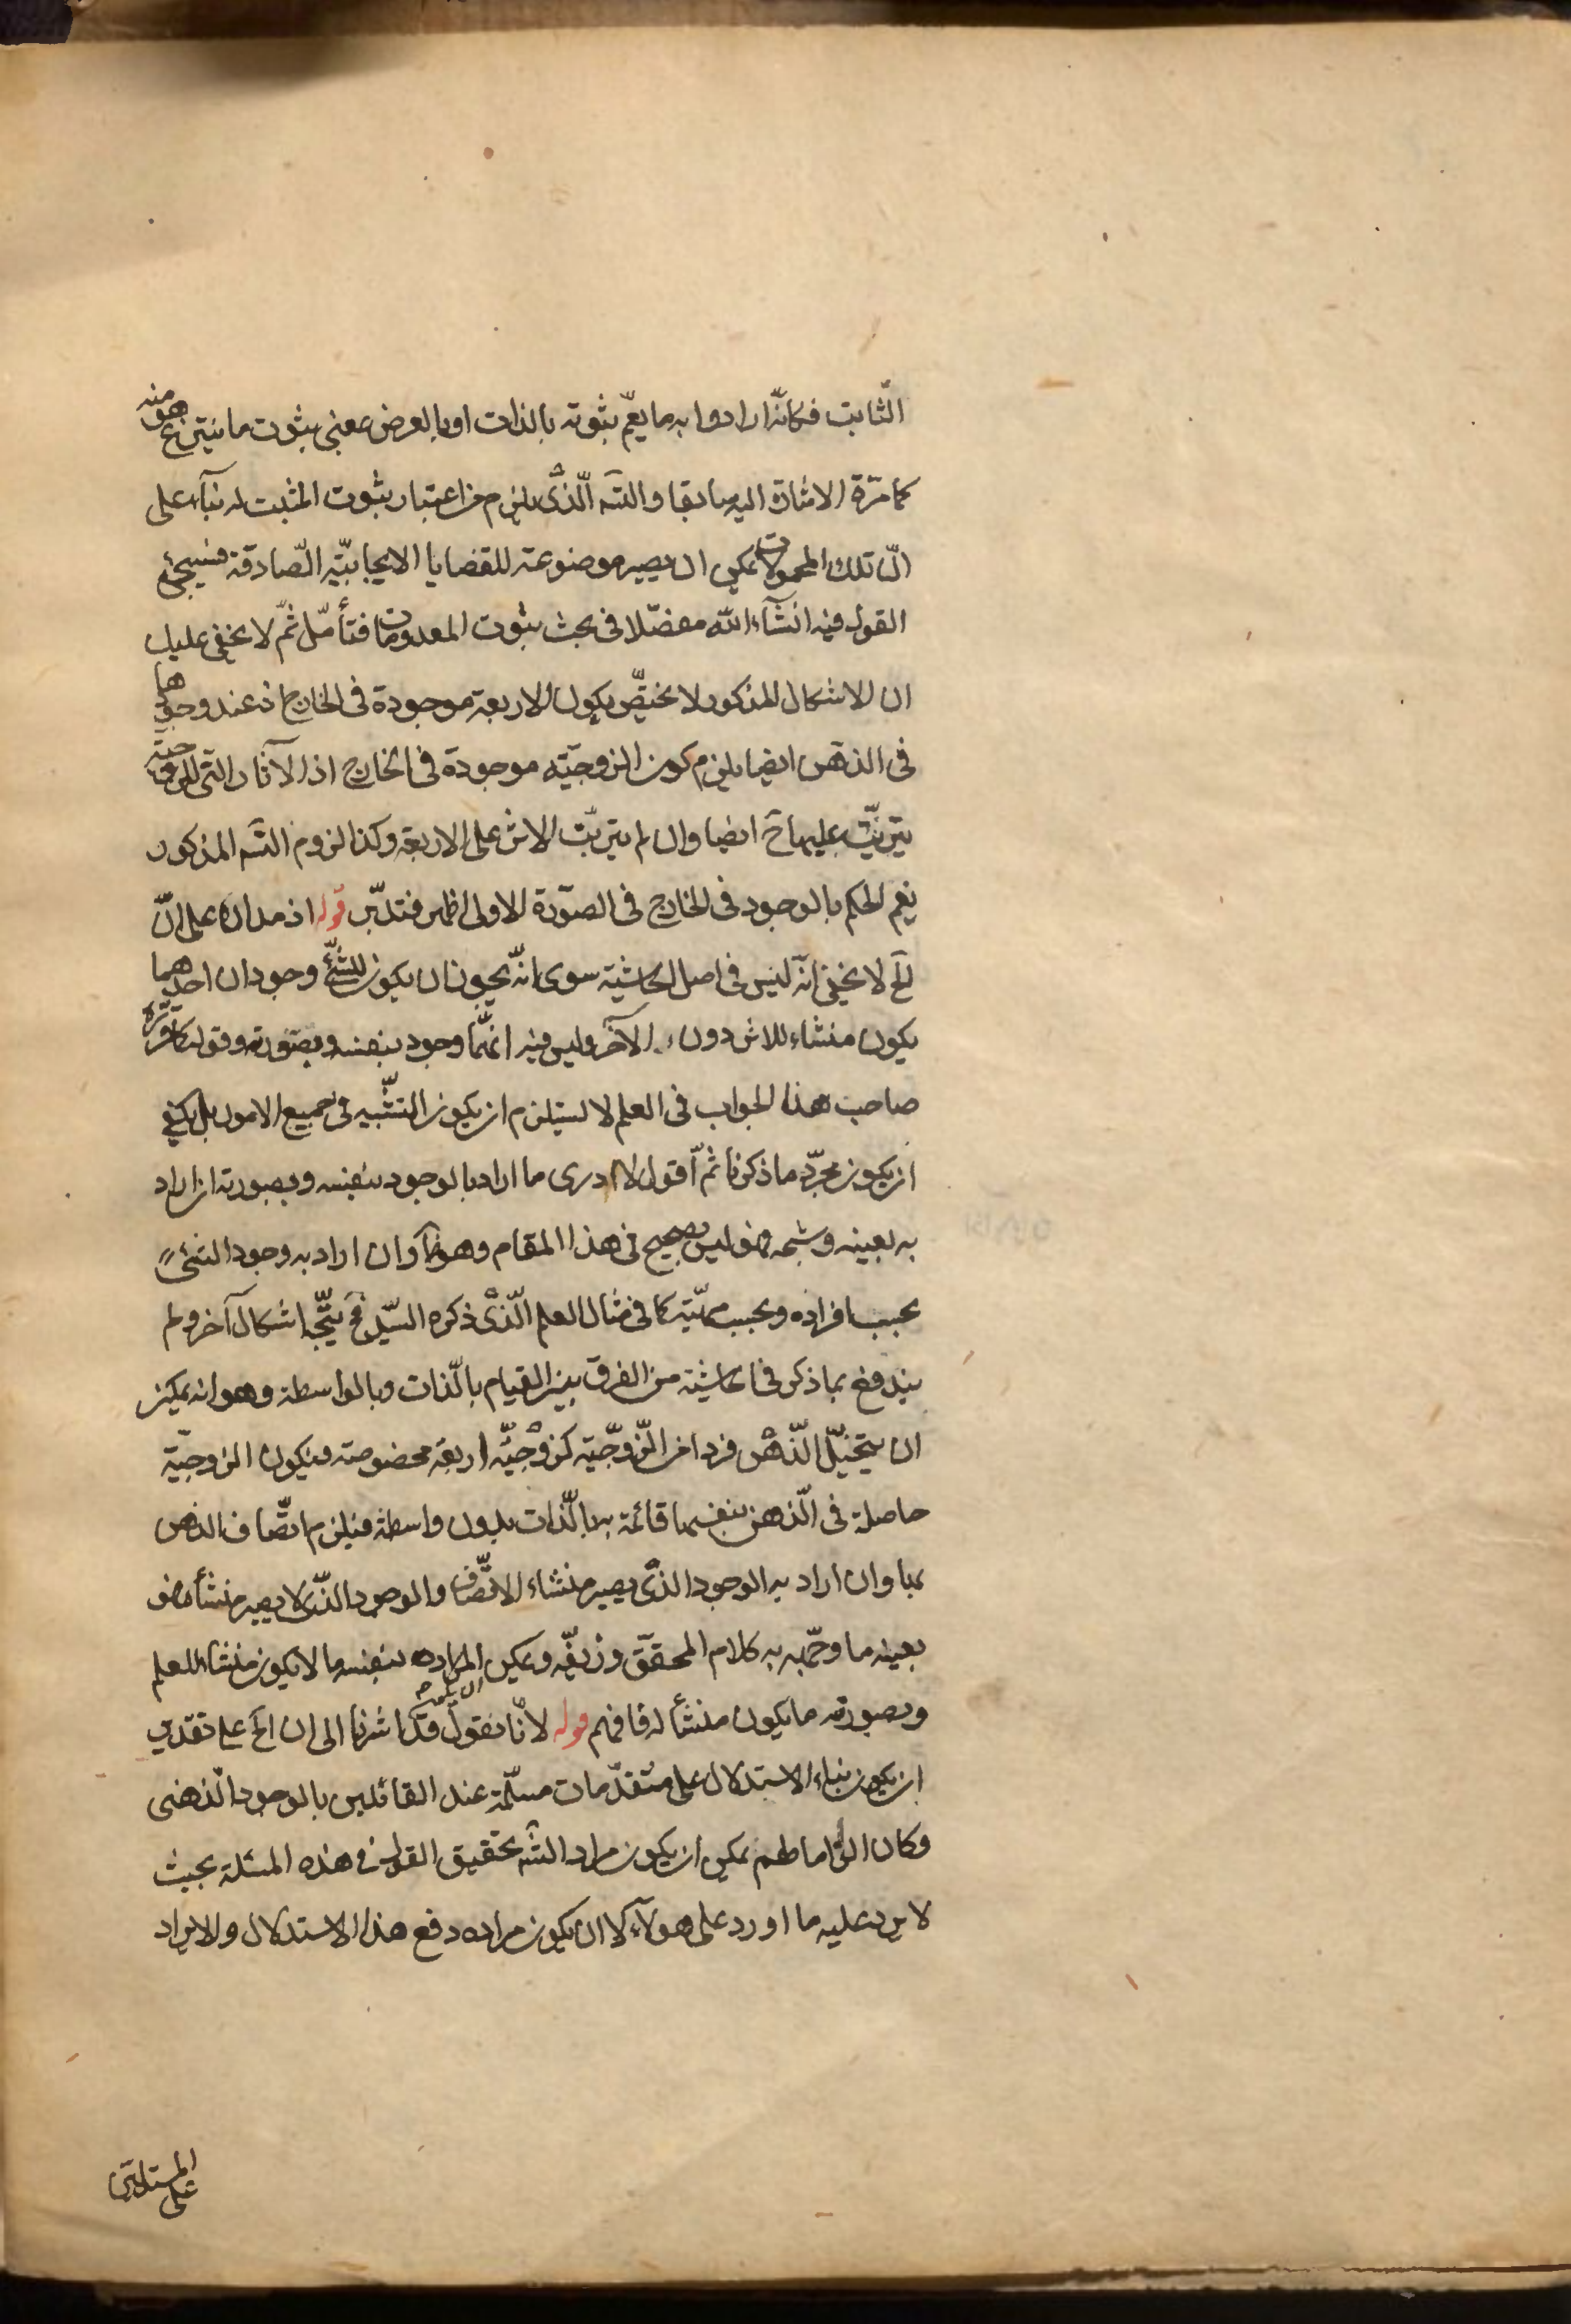 الثّابت فكانّه ارادوا به ما يعمّ ثبوته بالذات او بالعرض بمعنى ثبوت ما ينتزع هو منه
كما مرّة الاشارة اليه سابقا والشه الّذى يلزم من اعتبار ثبوت المثبت له بناء على
انّ تلك المحمولات يمكن ان يصير موضوعة للقضايا الايجابيّة الصّادقة فسيجئ
القول فيه انشآء الله مفصّلا فى بحث ثبوت المعدومات فتأمّل ثمّ لا يخفى عليك
ان الاشكال المذكور لا يختصّ بكون الاربعة موجودة فى الخارج اذ عند وجودها
فى الذهن ايضا يلزم كون الزوجيّة موجودة فى الخارج اذ الآثار التى للزوجيّة
يترتّب عليها ح ايضا وان لم يترتّب الاثر على الاربعة وكذا لزوم الشه المذكور
نعم الحكم بالوجود فى الخارج فى الصّورة الاولى اظهر فتدبّر قوله اذ مداره على انّ
الخ لا يخفى انّه ليس فى اصل الحاشية سوى انّه يجوز ان يكون للشّئ وجودان احدهما
يكون منشاء للاثر دون الآخر وليس فيه انهما وجود بنفسه وبصورته وقوله كما قرّره
صاحب هذا الجواب فى العلم لا يستلزم ان يكون التشبيه فى جميع الامور بل يكفى
ان يكون مجرّد ما ذكرنا ثمّ اقول لا ادرى ما اراد بالوجود بنفسه وبصورته ان اراد
به بعينه وشبحه فهو ليس بصحيح فى هذا المقام وهو ظ وان اراد به وجود الشئ
بحسب افراده وبحسب مهيّته كما فى مثال العلم الّذى ذكره السّيّد فح يتّجه اشكال آخر ولم
يندفع بما ذكر فى الحاشية من الفرق بين القيام بالذّات وبالواسطة وهو انه يمكن
ان يتخيّل الذّهن فردا من الزّوجيّة كزوجيّة اربعة مخصوصة فيكون الزوجيّة
حاصلة فى الذّهن بنفسها قائمة به بالذّات بدون واسطة فيلزم اتّصاف الذهن
بها وان اراد به الوجود الذى يصير منشاء الاتّصاف والوجود الذّى لا يصير منشأ فهو
بعينه ما وجّهه به كلام المحقّق وزيّفه ويمكن ان يكون مراده بنفسه ما لا يكون منشاء للعلم
وبصورته ما يكون منشأ له فافهم قوله لانّا نقول قد اشرنا الى ان الخ على تقدير
ان يكون بناء الاستدلال على مقدّمات مسلّمة عند القائلين بالوجود الذهنى
وكان الزاما لهم يمكن ان يكون مراد الشه تحقيق القول فى هذه المسئلة بحيث
لا يرد عليه ما اورد على هولآء لا ان يكون مراده دفع هذا الاستدلال والايراد
على المستدلين